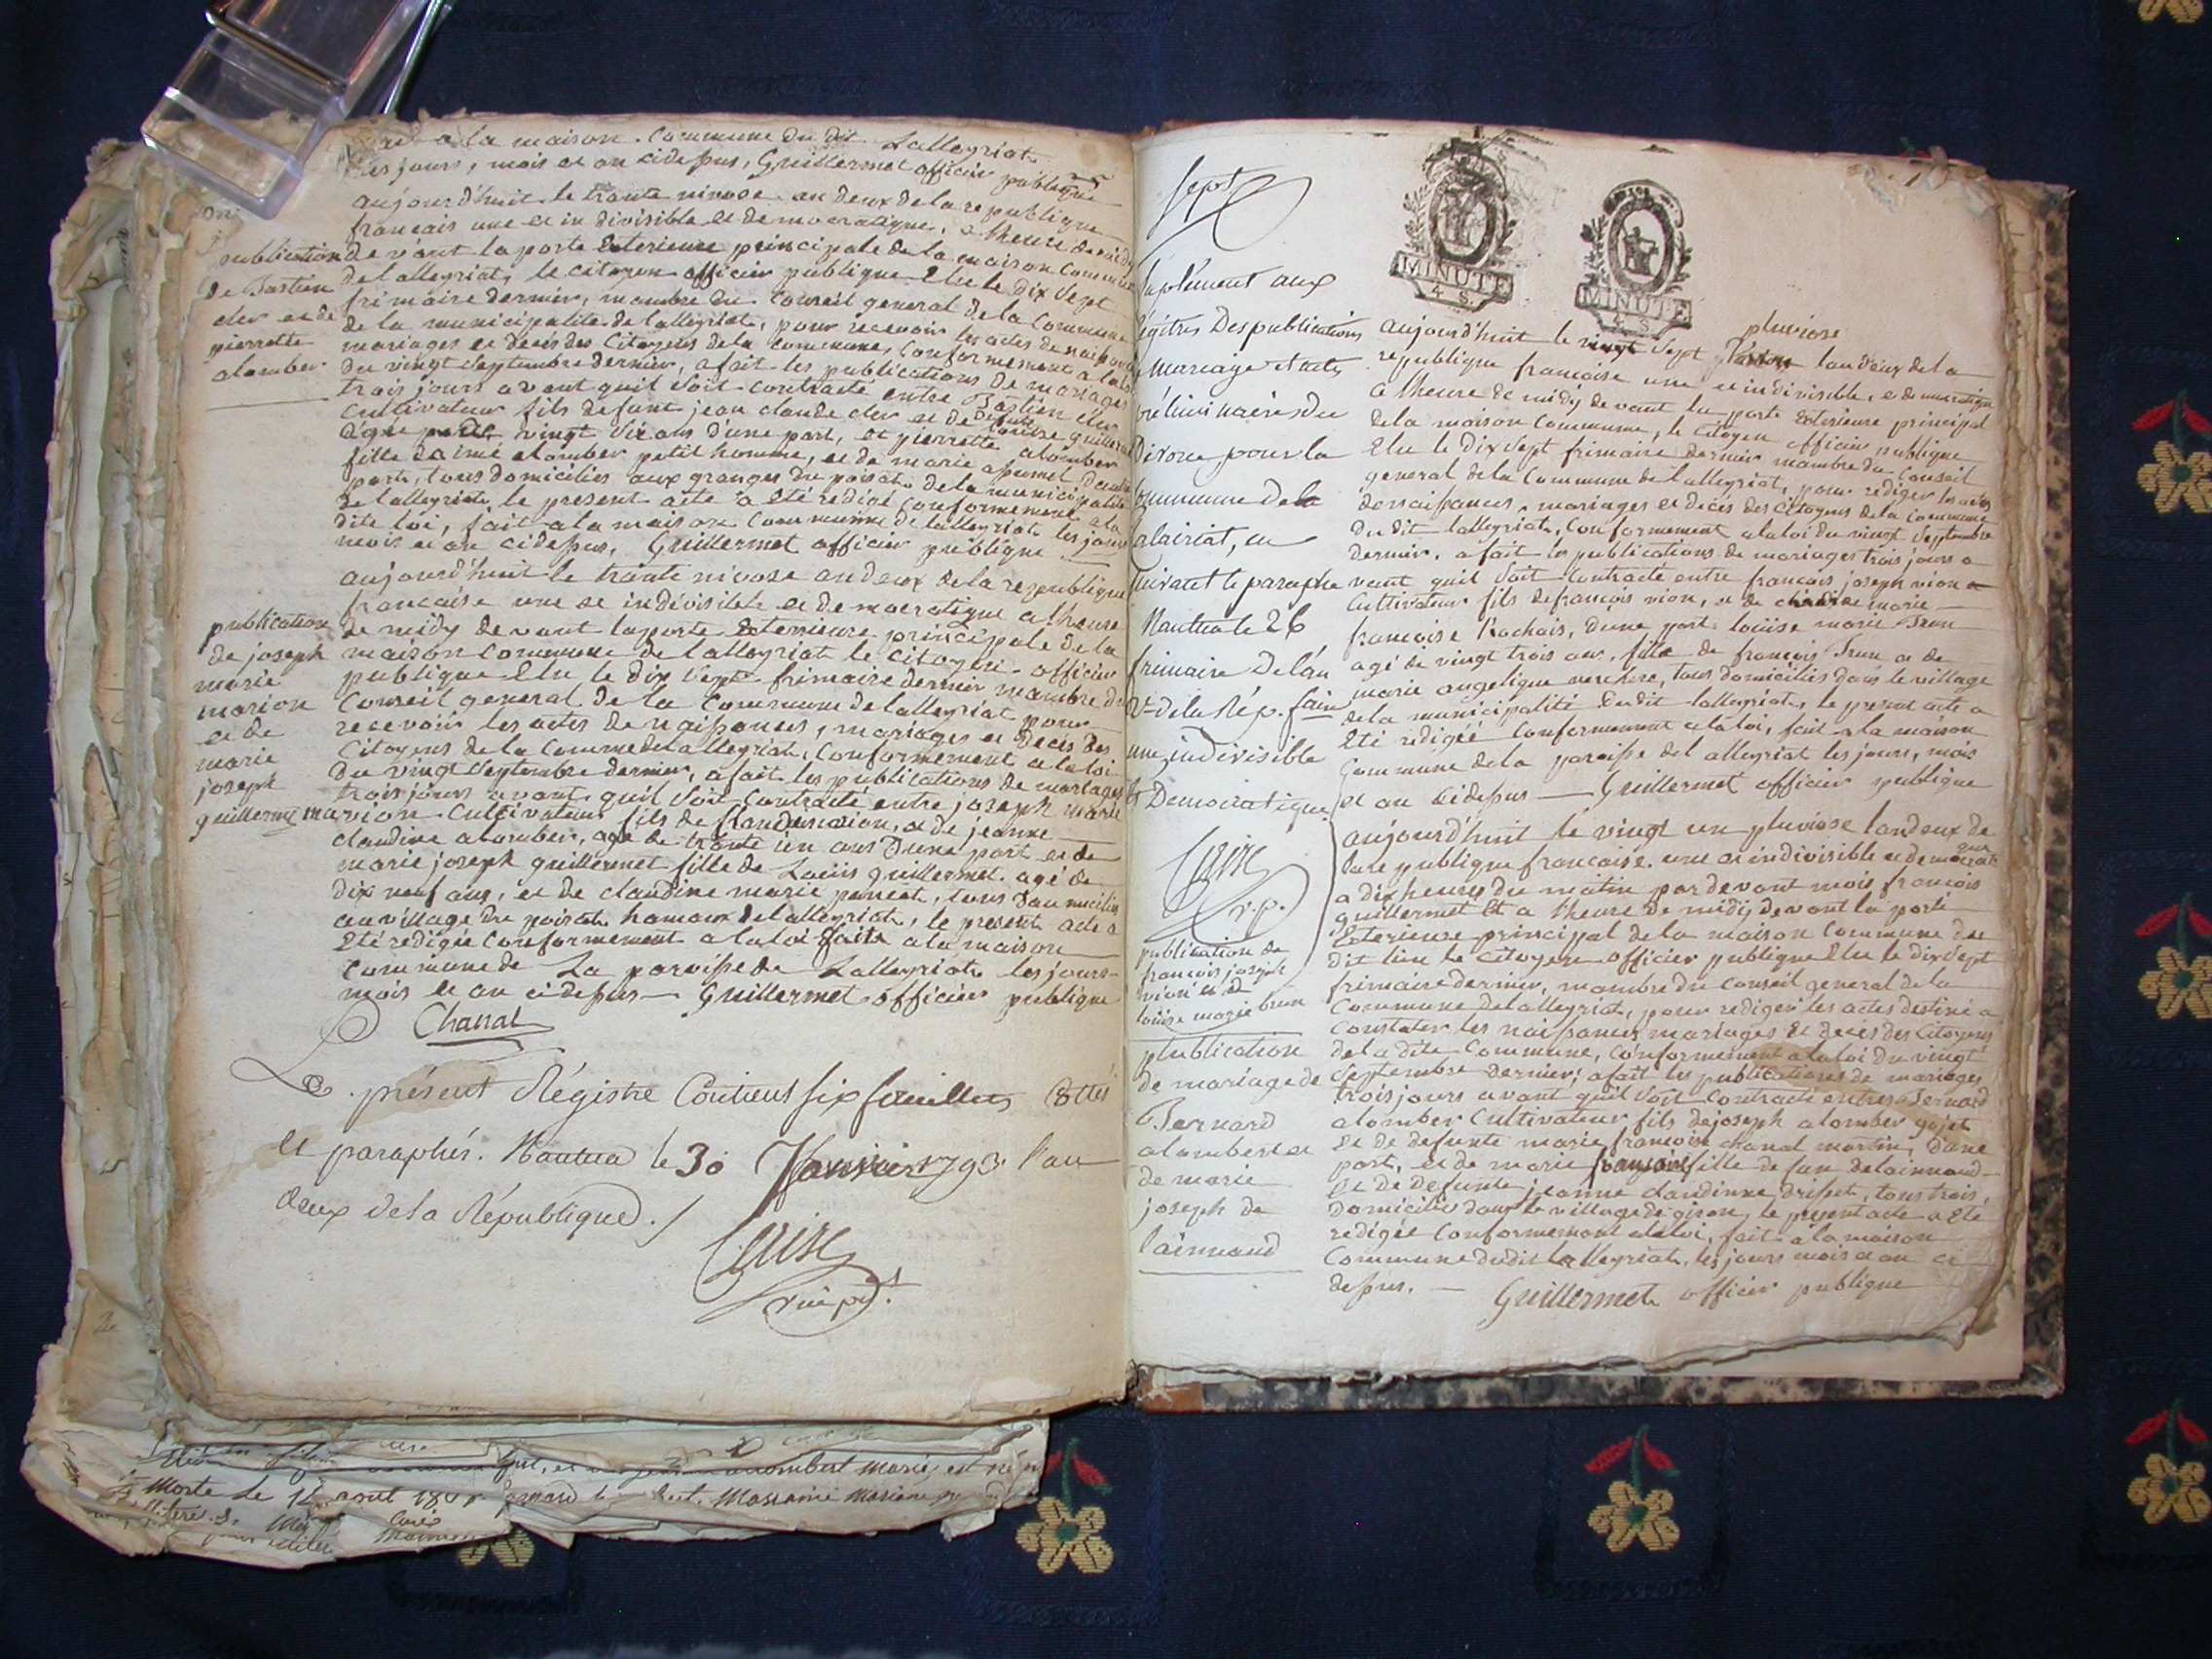 a la maison. Commune du dit Lalleyriat
les jours, mois et an cidessus, Guillermet officier publique
aujourd'huit le trante nivose an deux de la republique
francais une et in divisible et democratique, a lheure de midy
publication
de Bastien
cler et de
pierrette
alomber
de vant la porte Exterieure principale de la maison Commune
de lalleyriat, le citoyen officier publique Elu le dix Sept
frimaire dernier, mambre du Conseil general de la Commune
de la municipalite de lalleyriat, pour recevoir les actes de naissances
mariages et deces des Citoyens de la commune, Conformement a la loi
du vingt Septembre dernier, a fait les publications de mariages
trois jours avant quil Soit contracté entre Bastien cler
Cultivateur fils defunt jean claude cler et de Louise guillermet
agé vingt Six ans d'une part, et pierrette alomber
fille daimé alomber petit homme, et de marie
part, tous domicilies aux granges du poisat de la municipalite
de lalleyriat, le present acte a Eté redigé Conformement a la
dite loi, fait a la maison Commune de lalleyriat les jours
mois et an cidessus, Guillermet officier publique
aujourd'huit le trante nivose an deux de la republique
francaise une et indivisible et democratique a lheure
publication
de joseph
marie
marion
et de
marie
joseph
guillermet
de midy devant la porte Exterieure principale de la
maison Commune de lalleyriat le citoyen officier
publique Elu le dix Sept frimaire dernier mambre du
Conseil general de la Commune de lalleyriat pour
recevoir les actes de naissances, mariages et deces des
Citoyens de la Comme de lalleyriat, Conformement a la loi
du vingt Septembre dernier, a fait les publications de mariages
trois jours avant quil Soit Contracté entre joseph marie
marion Cultivateur fils de marion, et de jeanne
claudine alomber, agé de trante un ans d'une part et de
marie joseph guillermet fille de Louis guillermet agé de
dix neuf ans, et de claudine marie , tous Domicilies
au village du poisat hamaux de lalleyriat, le present acte a
Eté redigée Conformement a la loi faite a la maison
Commune de La paroisse de Lalleyriat les jours
mois et an cidessus — Guillermet officier publique
Chanal
Le présent Régistre Contient six feuillets Cottés
et paraphés. Nantua le 30 Janvier 1793 l'an
deux de la République ./
Sept
Suplément aux
régitres Des publications
Mariage et actes
préliminaires du
Divorce pour la
Commune de la
lairiat, en
Suivant le paraphe
Nantua le 26
frimaire De lan
2e de la Rép. faire
une, indivisible
et Democratique
MINUTE
4 S.
MINUTE
4 S.
pluviose
aujourd'huit le vingt Sept lan deux de la
republique francaise une et indivisible, et democratique
a lheure de midy devant la porte Exterieure principal
de la maison Commune, le Citoyen officier publique
Elu le Dix Sept frimaire dernier mambre du Conseil
general de la Commune de lalleyriat, pour rediger les actes
de naissances, mariages et décés des Citoyens de la Commune
du dit lalleyriat, Conformement a la loi du vingt Septembre
dernier, a fait les publications de mariages trois jours a
vant quil Soit Contracté entre francois joseph vion
Cultivateur fils de françois vion, et de marie
francoise Rochais, dune part. loüise marie Brun
agé de vingt trois ans, fille de francois Brun et de
marie angelique , tous domiciliés dans le village
de la municipalité dudit lalleyriat, le present acte a
Eté redigéé Conformement a la loi, fait a la maison
Commune de la paroisse de lalleyriat les jours, mois
et an cidessus — Guillermet officier publique
publication de
francois joseph
vion et de
loüise marie brun
publication
de mariage de
Bernard
alomber et
de marie
joseph de
lainnaud
aujourd'huit le vingt un pluviose lan deux de
la republique francaise. une et indivisible et democratique
a dix heures du matin par devant mois francois
guillermet Et a lheure de midy devant la porte
Exterieure principal de la maison Commune du
dit lieu le Citoyen officier publique Elu le dix Sept
frimaire dernier, mambre du Conseil general de la
Commune de lalleyriat, pour rediger les actes destiné a
Constater les naissances mariages et deces des Citoyens
de la dite Commune, Conformement a la loi du vingt
Septembre dernier, a fait les publications de mariages
trois jours avant quil Soit Contracté entre Bernard
alomber Cultivateur fils de joseph alomber gojet
Et de defunte marie francoise chanal martin, dune
part, et de marie fille de jan delainnaud
Et de defunte jeanne claudinne drisset, tous trois
Domicilié dans le village de giron, le present acte a Eté
redigée Conformement a la loi, fait a la maison
Commune dudit lalleyriat, les jours mois et an ci
dessus. — Guillermet officier publique
Morte le 12 aout